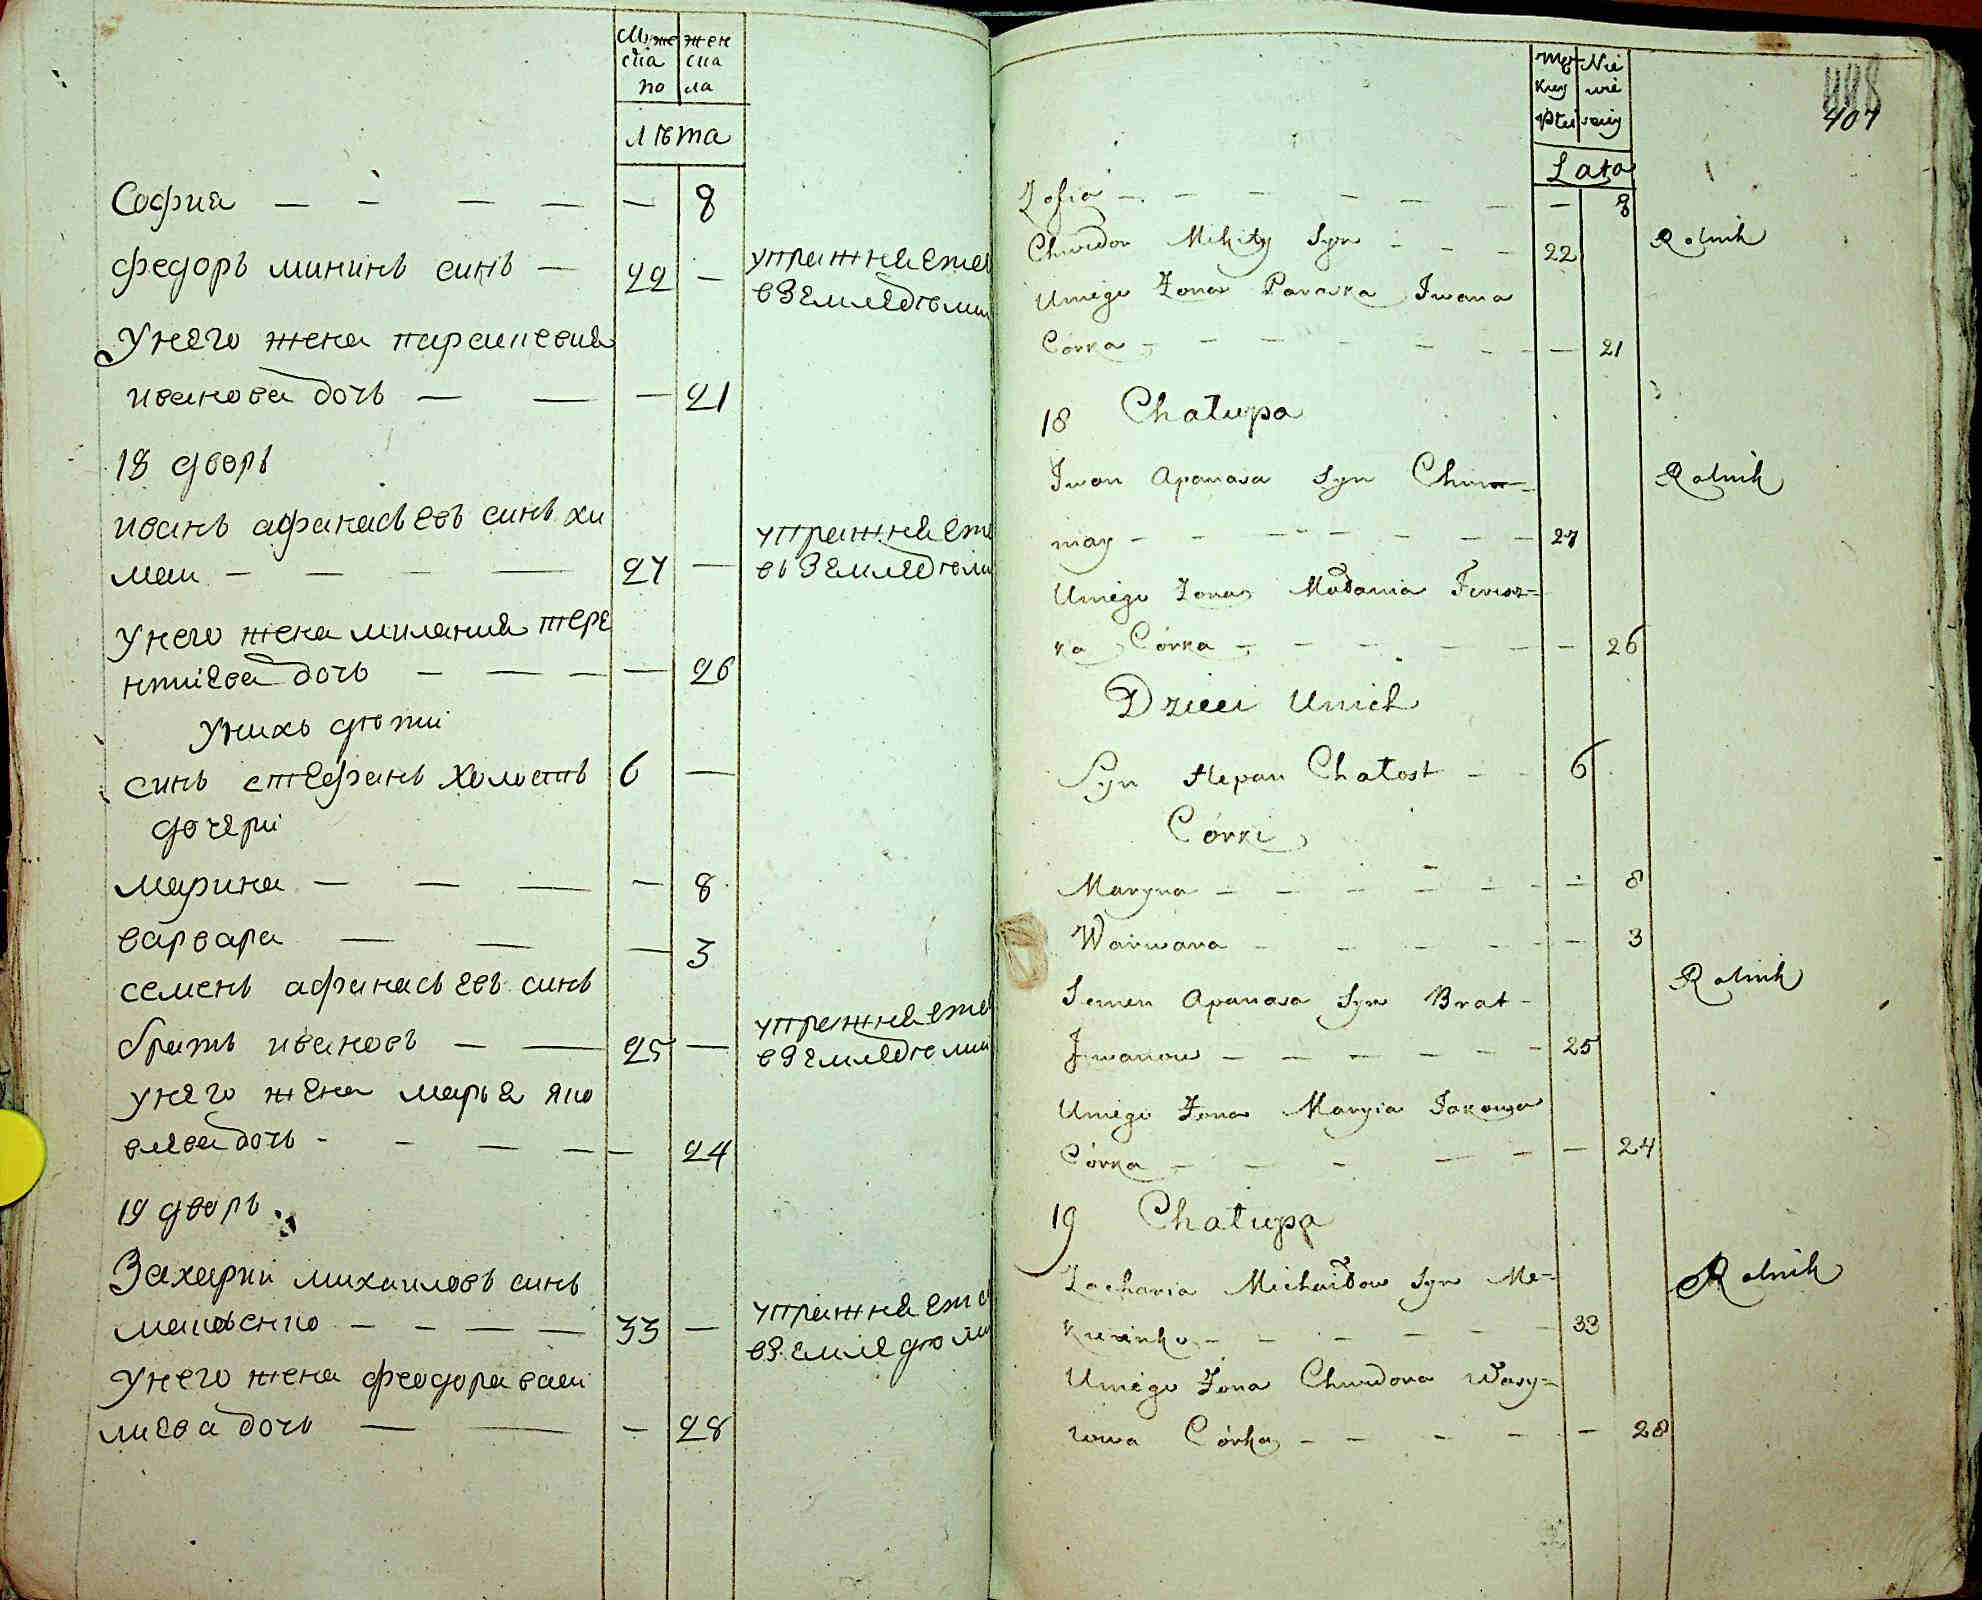 Муже жен
ска ска
го ла
лѣта
София — — — — — 8
федоръ микинъ синъ — 22 — упражняетс
в Земледѣлии
Унего жена параскевия
иванова дочь — — — 21
18 дворъ
иванъ афанасьевъ синъ хи
маи — — — — 27 — упражняетс
въ Земледѣли
Унего жена милания тере
нтиева дочь — — — — 26
Унихъ дѣти
синъ стефанъ холостъ 6 —
дочери
марина — — — — 8
варвара — — — 3
семенъ афанасьевъ синъ
братъ ивановъ — — 25 — упражняетс
в Земледѣлии
унего жена марья яко
влева дочь - - — — — 24
19 дворъ
Захарий михаиловъ синъ
— — — — 33 — упражняетс
в Земледѣли
Унего жена феодора васи
лиева дочь — — — 28
Mę Nie
zkiey wie
Płci sciey
Lata
407
Zofia — — — — — — — 8
Chwedor Mikity Syn — — — 22 Rolnik
Uniego Zona Paraska Iwana
Córka — — — — — — — — 21
18 Chałupa
Iwan Apanasa Syn Chi= Rolnik
may — — — — — — — 27
Uniego Zona Małania Teresz=
ka Córka — — — — — — — 26
Dzieci Unich
Syn Stepan Chałost — — 6
Córki
Maryna — — — — — — — 8
Warwara — — — — — — 3
Semen Apanasa Syn Brat — Rolnik
Iwanow — — — — — — 25
Uniego Zona Maryia Jakowa
Córka — — — — — 24
19 Chałupa
Zacharia Michaiłow Syn Me= Rolnik
— — — — — — 33
Uniego Zona Chwedora Wasy=
lowa Córka — — — — — 28